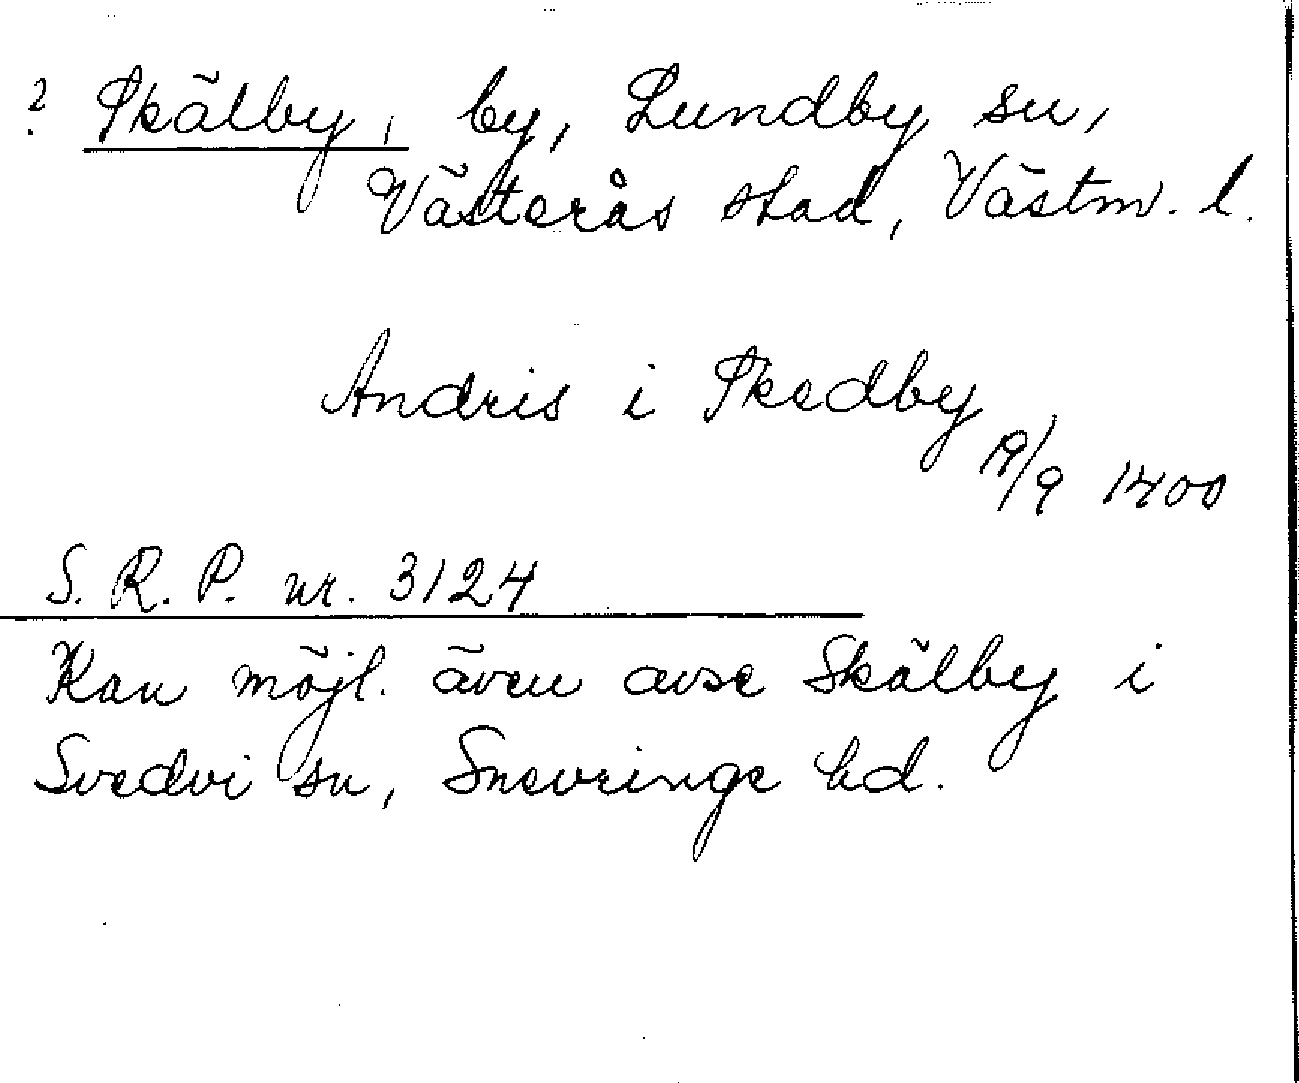 ? Skälby, by, Lundby sn,
Västerås stad, Västm. l.
Andris i Skedby
19/9 1400
S. R. P. nr. 3124
Kan möjl. även avse Skälby i
Svedvi sn, Snevringe hd.